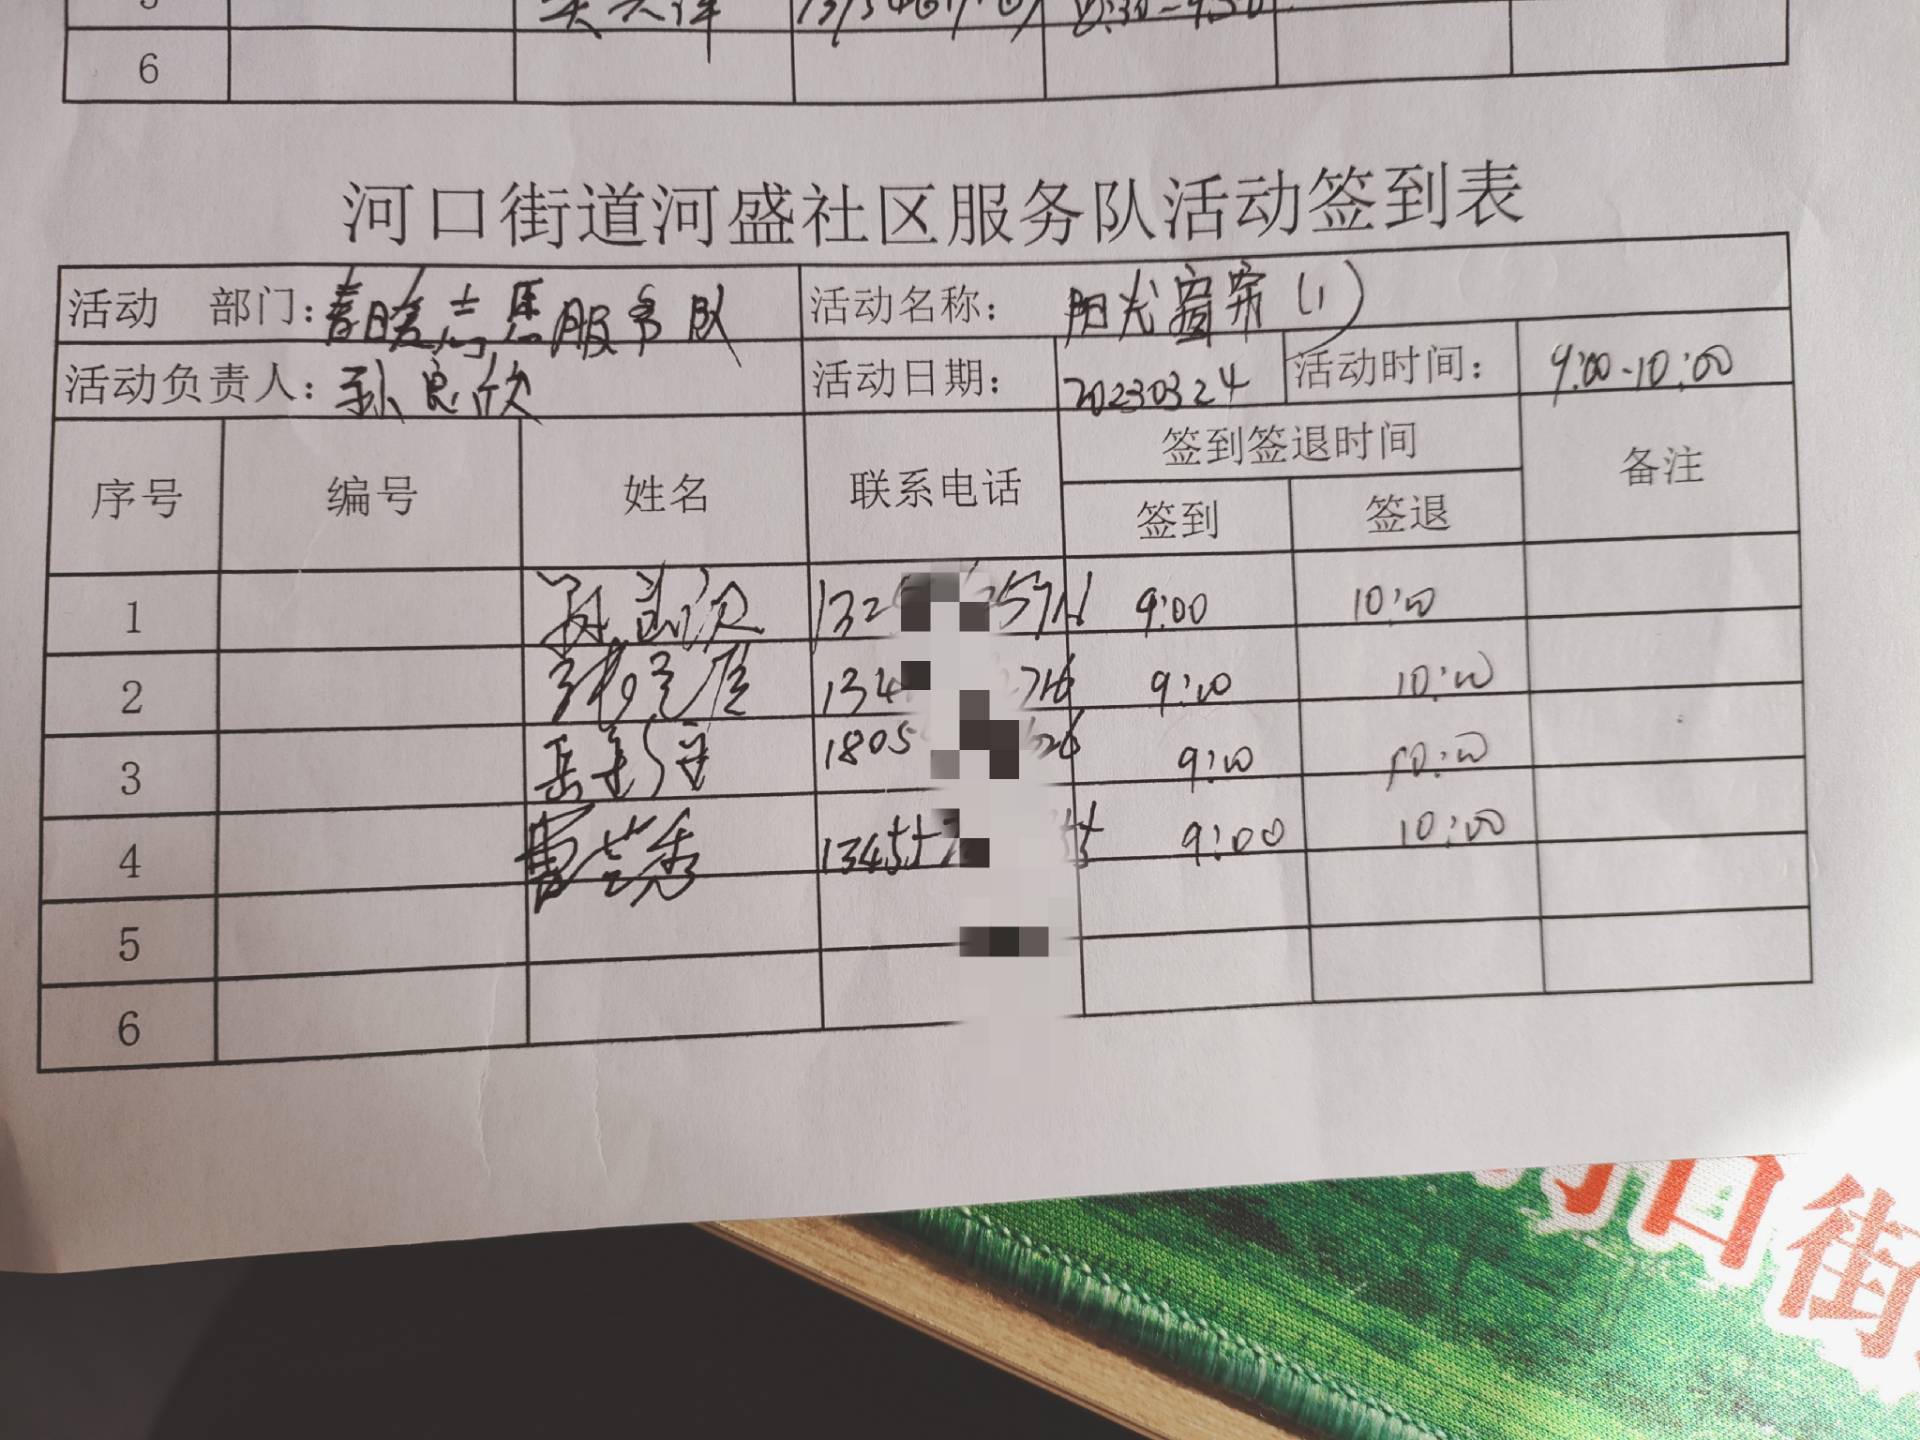 6
河口街道河盛社区服务队活动签到表
活动 部门：春暖志愿服务队 活动名称：阳光窗帘（1）
活动负责人：孙良欣 活动日期：20230324 活动时间：9:00-10:00
序号 编号 姓名 联系电话 签到签退时间 备注
签到 签退
1 132 9:00 10:00
2 134 716 9:00 10:00
3 岳 1805 626 9:00 10:00
4 曹兰秀 1345 9:00 10:00
5
6
口街